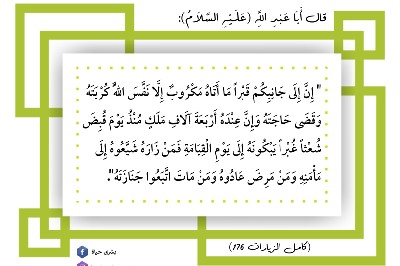 قال أَبَا عَبْدِ اللَّهِ (عَلَيْهِ السَّلَامُ):
" إِنَّ إِلَى جَانِبِكُمْ قَبْراً مَا أَتَاهُ مَكْرُوبٌ إِلَّا نَفَّسَ اللهُ كُرْبَتَهُ
وَقَضَى حَاجَتَهُ وَإِنَّ عِنْدَهُ أَرْبَعَةَ آلَافِ مَلَكٍ مُنْذُ يَوْمَ قُبِضَ
شُعْثاً غُبْراً يَبْكُونَهُ إِلَى يَوْمِ الْقِيَامَةِ فَمَنْ زَارَهُ شَيَّعُوهُ إِلَى
مَأْمَنِهِ وَمَنْ مَرِضَ عَادُوهُ وَمَنْ مَاتَ اتَّبَعُوا جَنَازَتَهُ".
(كامل الزيارات 176)
بشرى حياة